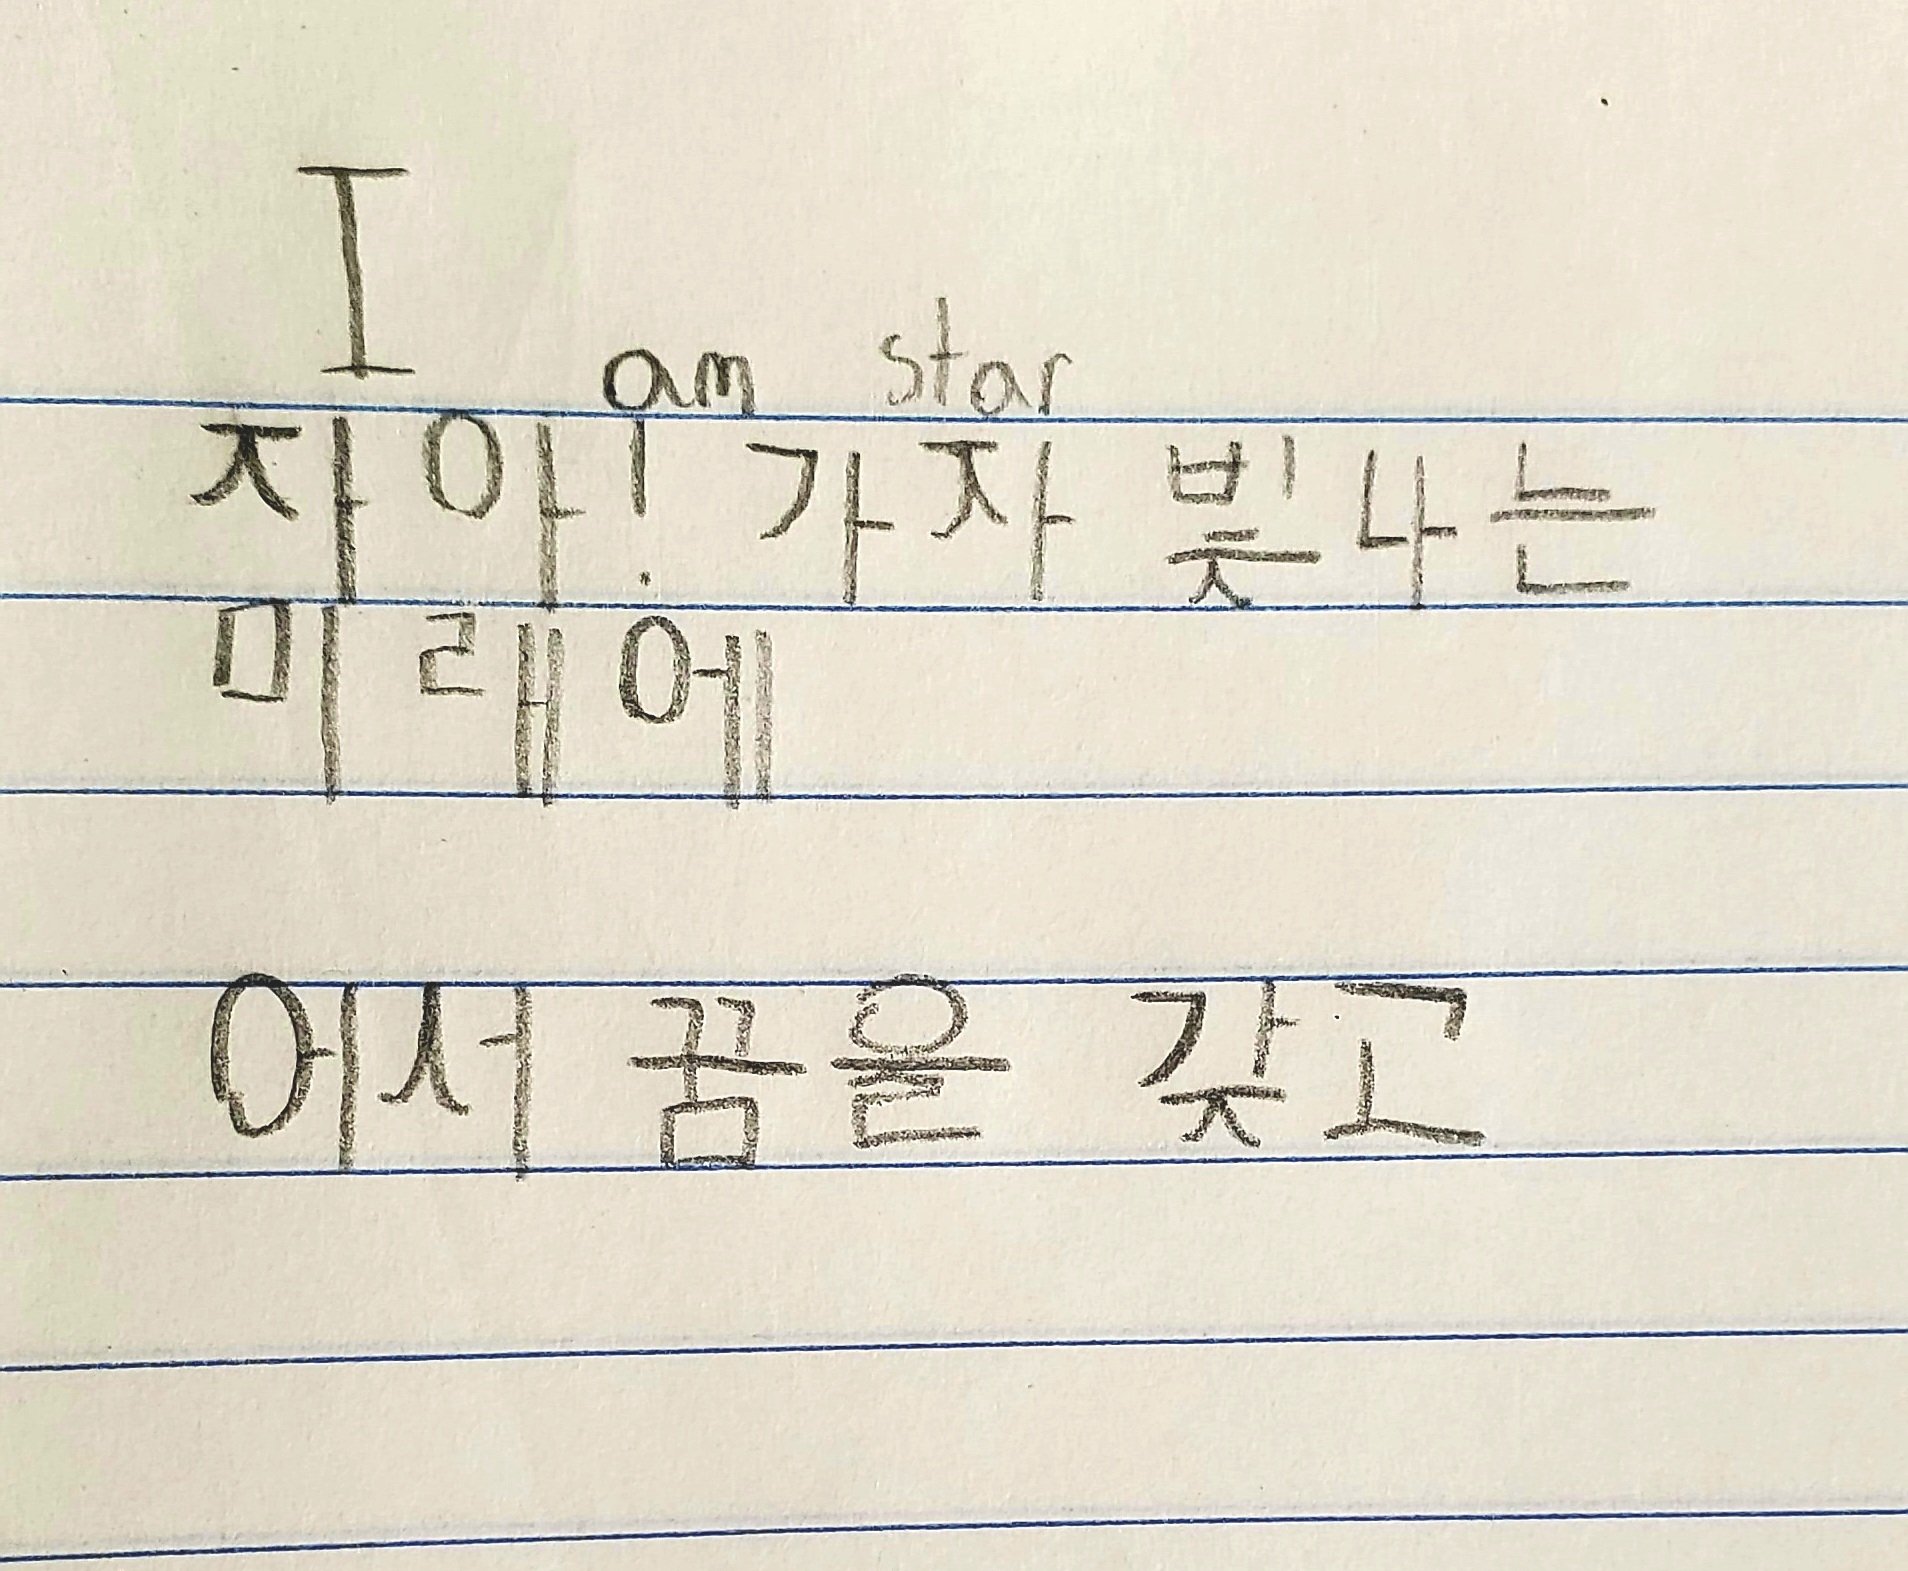 I am star
자아! 가자 빛나는
미래에
어서 꿈을 갖고